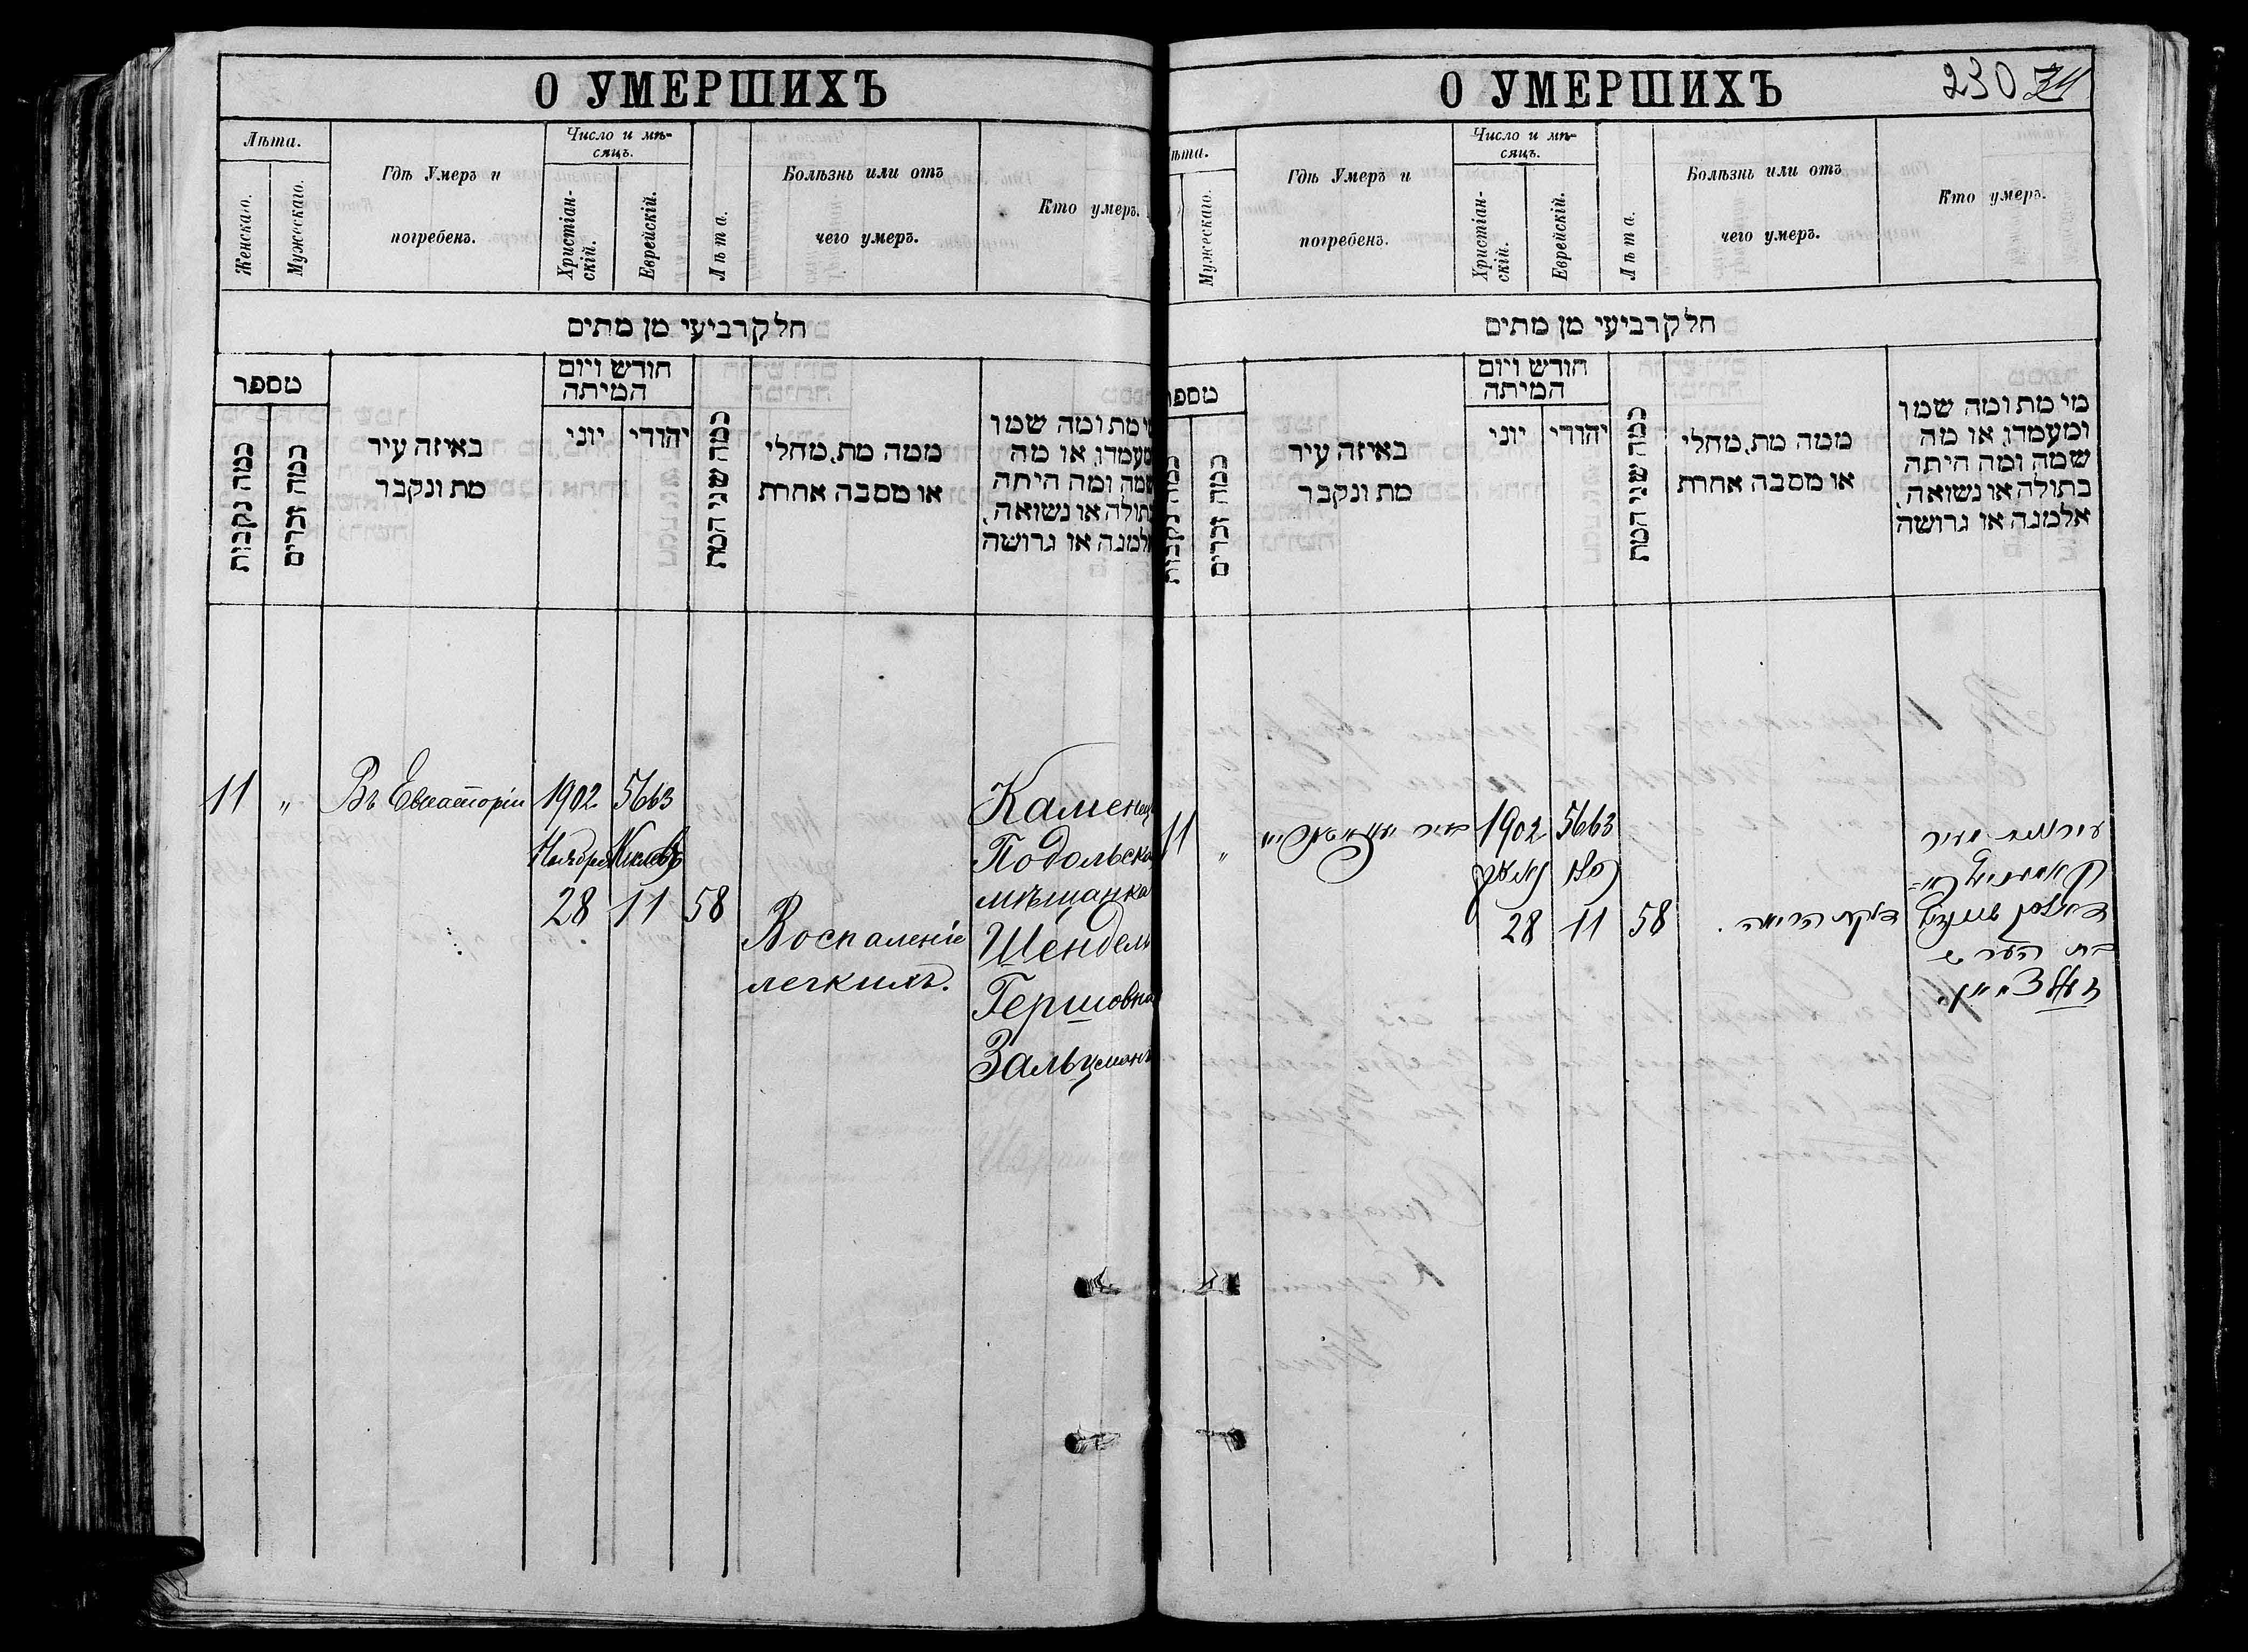 О УМЕРШИХЪ
Лѣта.
Женскаго.
Мужескаго.
Гдѣ Умеръ и
погребенъ.
Число и мѣ-
сяцъ.
Христіан-
скій.
Еврейскій.
Лѣта.
Болѣзнь или отъ
чего умеръ.
Кто умеръ.
חלק רביעי מן מתים
מספר
כמה נקבות
כמה זכרים
באיזה עיר
מת ונקבר
חודש ויום
המיתה
יוני
יהודי
כמה שני המת
ממה מת, מחלי
או מסבה אחרת
מת ומה שמו
ומעמדו, או מה
שמה ומה היתה
בתולה או נשואה,
אלמנה או גרושה
11
"
Въ Евпаторіи
1902
Ноября
28
5663
Кислевъ
11
58
Воспаленіе
легкихъ.
Каменец
Подольская
мѣщанка
Шендель
Гершовна
Зальцманъ
О УМЕРШИХЪ
230
Лѣта.
Мужескаго.
Гдѣ Умеръ и
погребенъ.
Число и мѣ-
сяцъ.
Христіан-
скій.
Еврейскій.
Лѣта.
Болѣзнь или отъ
чего умеръ.
Кто умеръ.
חלק רביעי מן מתים
מספר
כמה נקבות
כמה זכרים
באיזה עיר
מת ונקבר
חודש ויום
המיתה
יוני
יהודי
כמה שני המת
ממה מת, מחלי
או מסבה אחרת
מי מת ומה שמו
ומעמדו, או מה
שמה ומה היתה
בתולה או נשואה,
אלמנה או גרושה
11
"
בעיר
1902
28
5663
כסלו
11
58
דלקת הריאה.
מעיר
בת הערש
זאלצמאן